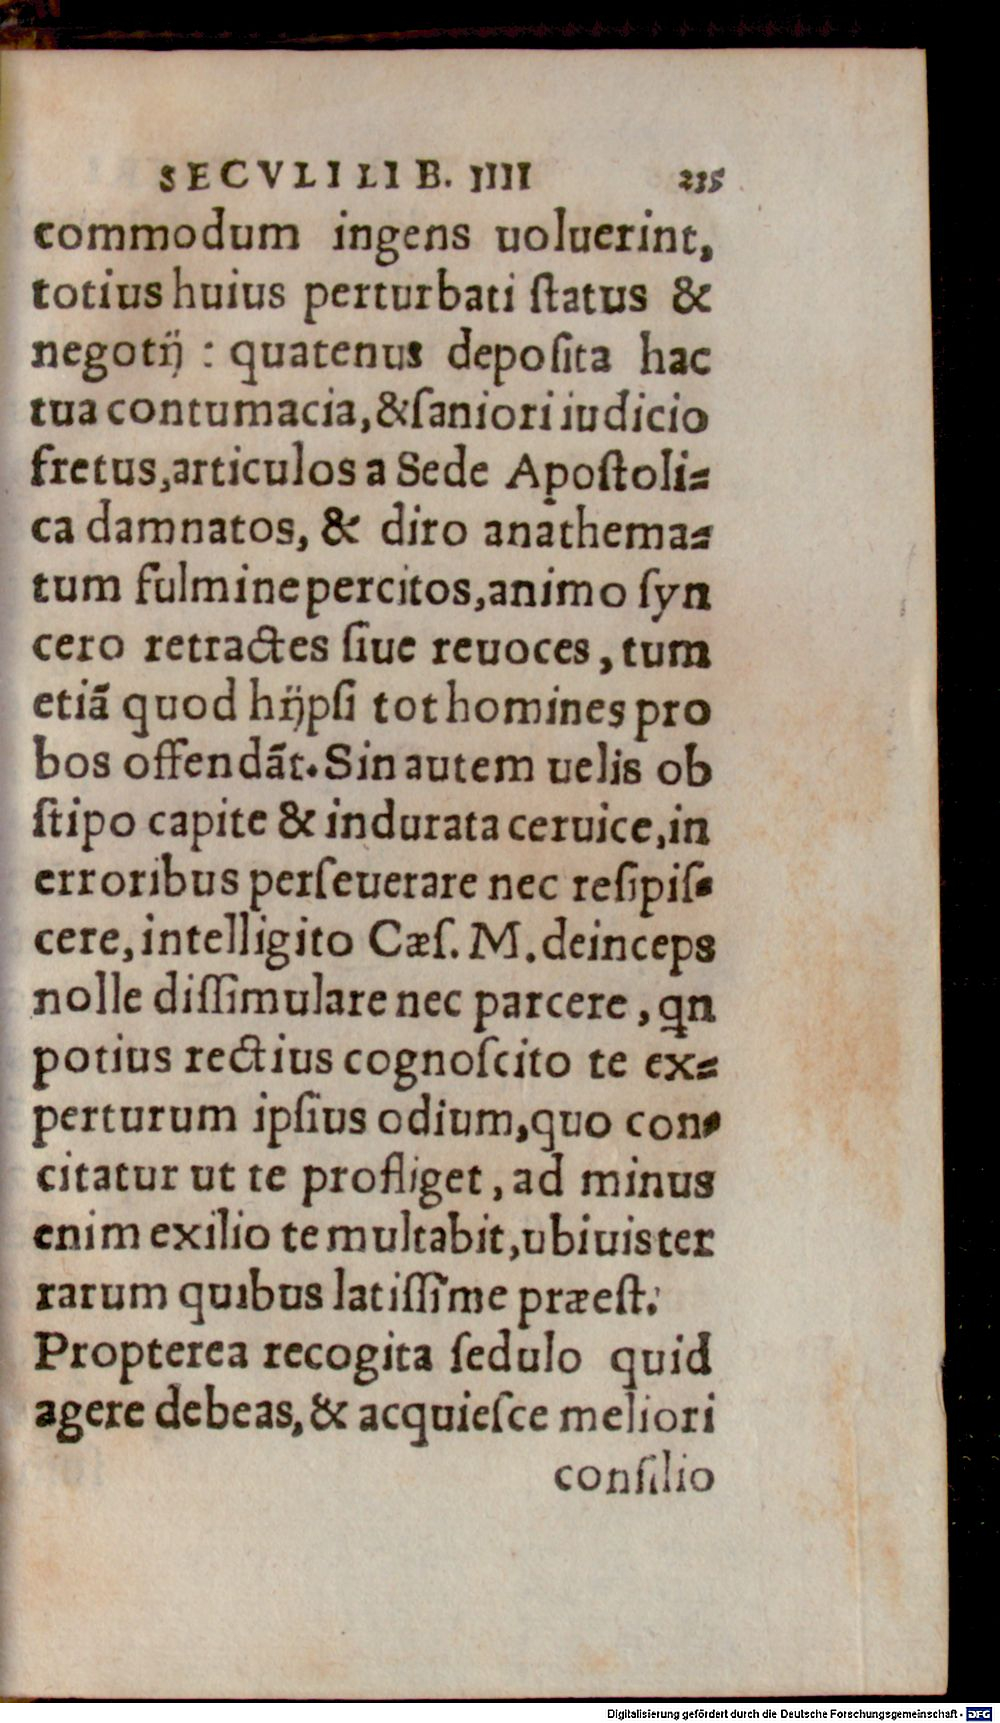 SECVLI LIB. IIII 235
commodum ingens uoluerint,
totius huius perturbati ſtatus &
negotij : quatenus depoſita hac
tua contumacia, & ſaniori iudicio
fretus, articulos a Sede Apoſtoli-
ca damnatos, & diro anathema-
tum fulmine percitos, animo ſyn
cero retractes ſiue reuoces, tum
etiã quod hijpſi tot homines pro
bos offendãt. Sin autem uelis ob
ſtipo capite & indurata ceruice, in
erroribus perſeuerare nec reſipiſ-
cere, intelligito Cæſ. M. deinceps
nolle diſſimulare nec parcere, qn
potius rectius cognoſcito te ex-
perturum ipſius odium, quo con-
citatur ut te profliget, ad minus
enim exilio te multabit, ubiuis ter
rarum quibus latiſſime præeſt.
Propterea recogita ſedulo quid
agere debeas, & acquieſce meliori
conſilio
Digitalisierung gefördert durch die Deutsche Forschungsgemeinschaft - DFG